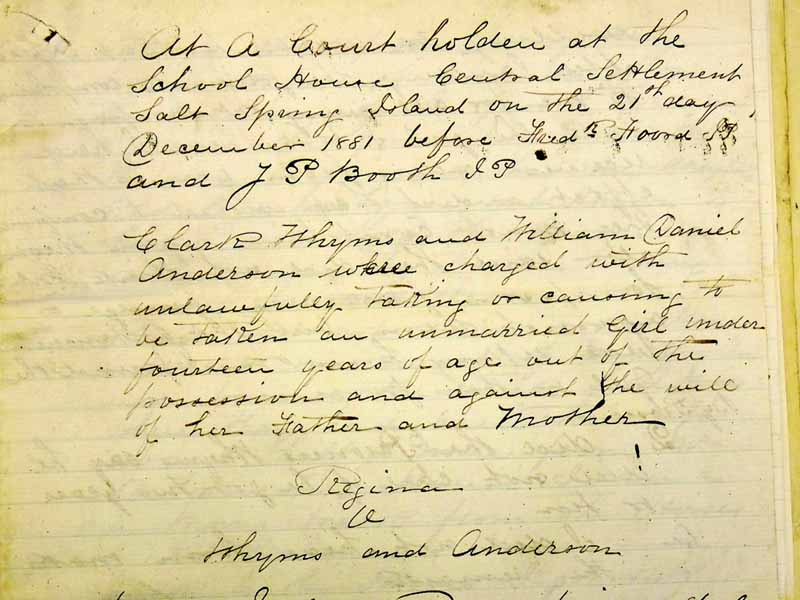 At A Court holden at the
School House Central Settlement
Salt Spring Island on the 21st day
December 1881 before Fredk Foord JP
and J P Booth J P
Clark Whyms and William Daniel
Anderson were charged with
unlawfully taking or causing to
be taken an unmarried Girl under
fourteen years of age out of the
possession and against the will
of her Father and Mother
Regina
v
Whyms and Anderson